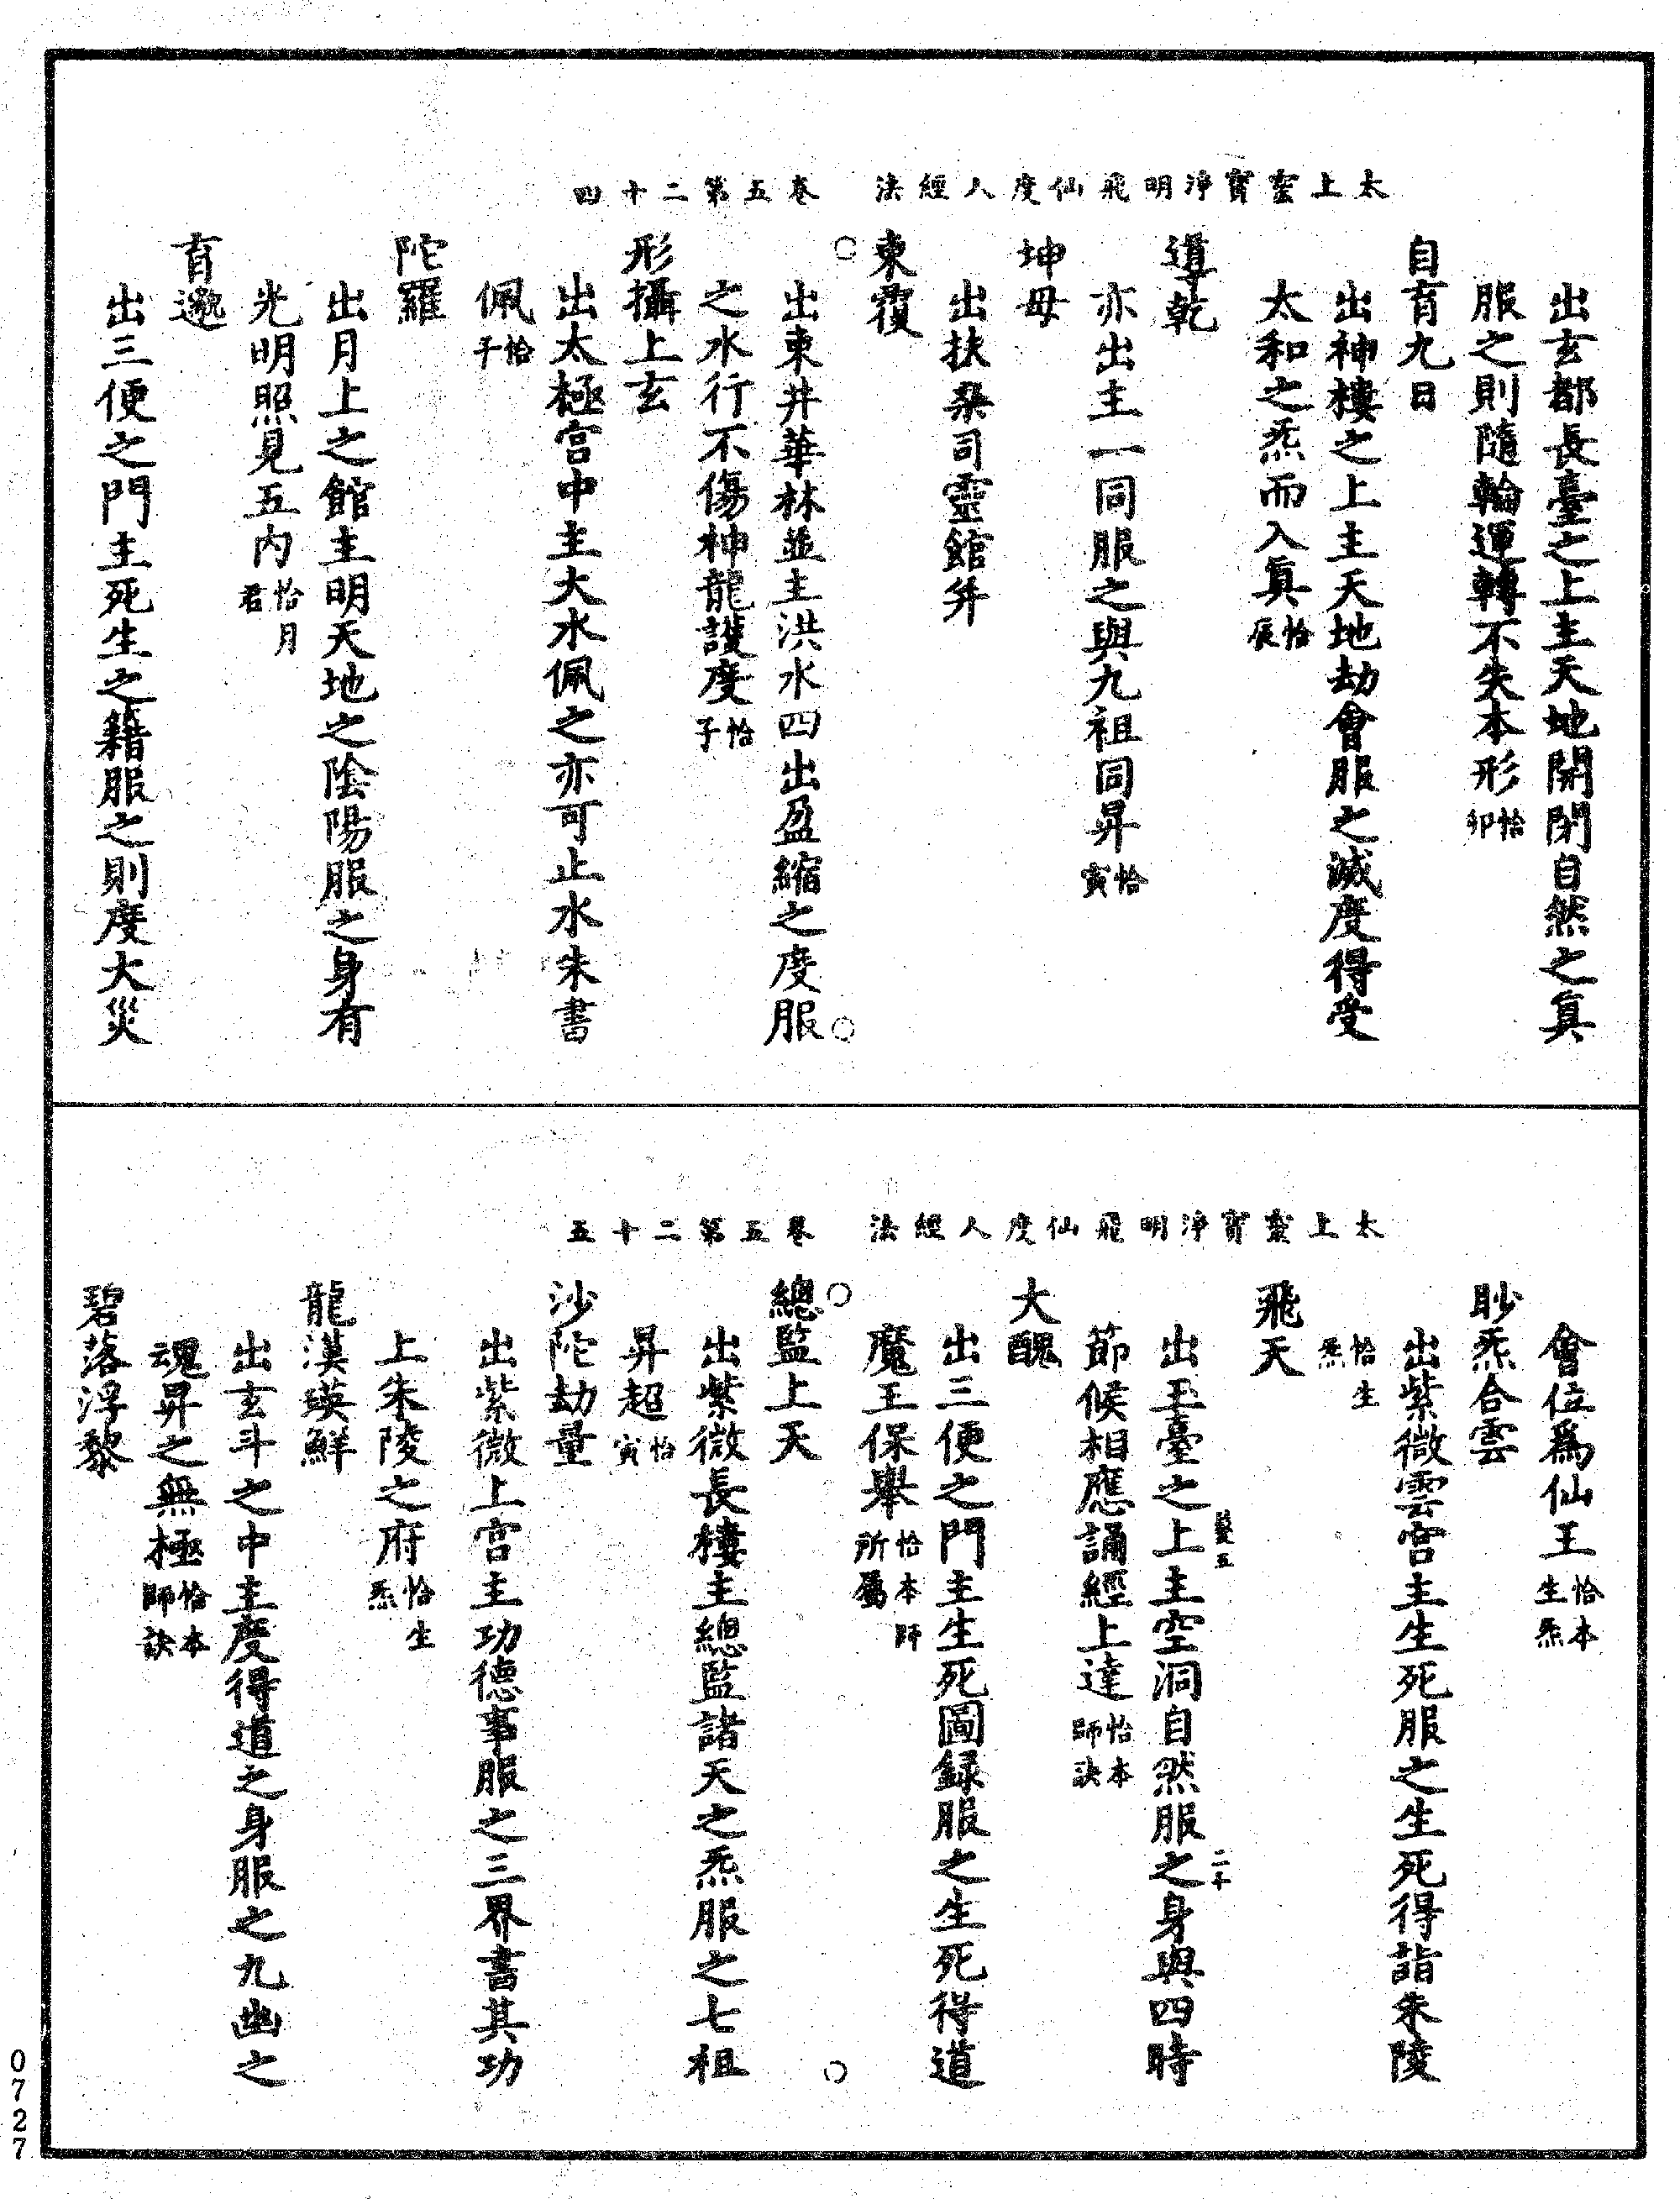 太上靈寳淨明飛仙度人經法　卷五第二十四
出玄都長臺之上主天地開閉自然之眞
服之則隨輪運轉不失本形恰卯
自育九日
出神樓之上主天地劫會服之滅度得受
太和之炁而入眞恰辰
導乾
亦出主一同服之與九祖同昇恰寅
坤母
出扶桑司靈館并
東覆
出東井華林並主洪水四出盈縮之度服
之水行不傷神龍護度恰子
形攝上玄
出太極宮中主大水佩之亦可止水朱書
佩恰子
陀羅
出月上之館主明天地之陰陽服之身有
光明照見五內恰月君
育邈
出三便之門主死生之籍服之則度大災
太上靈寳淨明飛仙度人經法　卷五第二十五
會位爲仙王恰本生炁
眇炁合雲
出紫微雲宮主生死服之生死得詣朱陵
恰生炁
飛天
出玉臺之上主空洞自然服之身與四時
節候相應誦經上達恰本師訣
大醜
出三便之門主生死圖録服之生死得道
魔王保舉恰本師所屬
總監上天
出紫微長樓主總監諸天之炁服之七祖
昇超恰寅
沙陀劫量
出紫微上宮主功德事服之三界書其功
上朱陵之府恰生炁
龍漢瑛鮮
出玄斗之中主度得道之身服之九幽之
魂昇之無極恰本師訣
碧落浮黎
0727